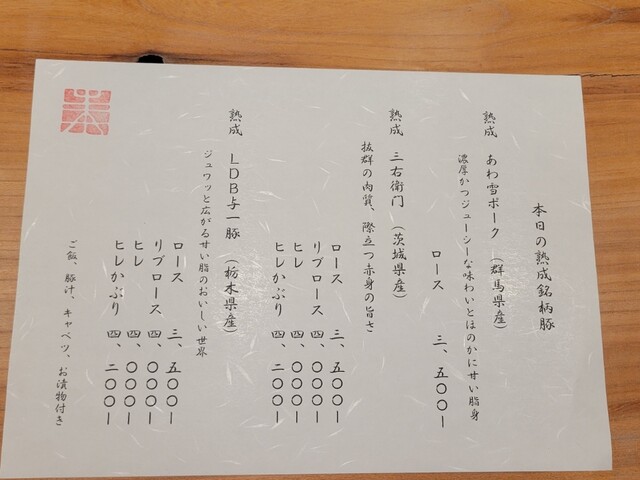 本日の熟成銘柄豚
熟成 あわ雪ポーク (群馬県産)
濃厚かつジューシーな味わいとほのかに甘い脂身
ロース 三、五〇〇ー
熟成 三右衛門 (茨城県産)
抜群の肉質、際立つ赤身の旨さ
ロース 三、五〇〇ー
リブロース 四、〇〇〇ー
ヒレ 四、〇〇〇ー
ヒレかぶり 四、二〇〇ー
熟成 LDB与一豚 (栃木県産)
ジュワッと広がる甘い脂のおいしい世界
ロース 三、五〇〇ー
リブロース 四、〇〇〇ー
ヒレ 四、〇〇〇ー
ヒレかぶり 四、二〇〇ー
ご飯、豚汁、キャベツ、お漬物付き